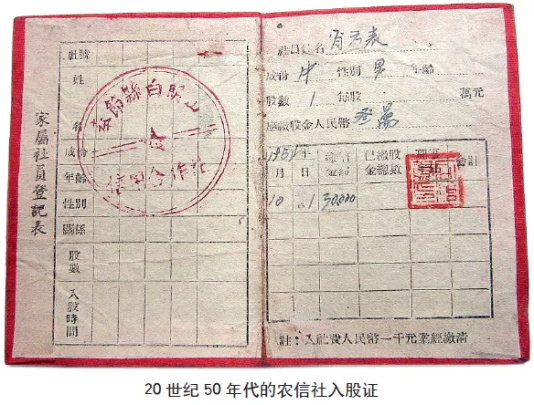 家屬社員登記表
社號
姓
名
成份
年齡
性別
關係
股數
入股時間
信用合作社
社員姓名 肖云表
成份 中 性別 男 年齡
股數 1 每股 萬元
應繳股金人民幣 叁萬
195 年
月 日 已繳股金總數 會計
10 1 30,000
註：入社費人民幣一千元業經繳清
20 世纪 50 年代的农信社入股证